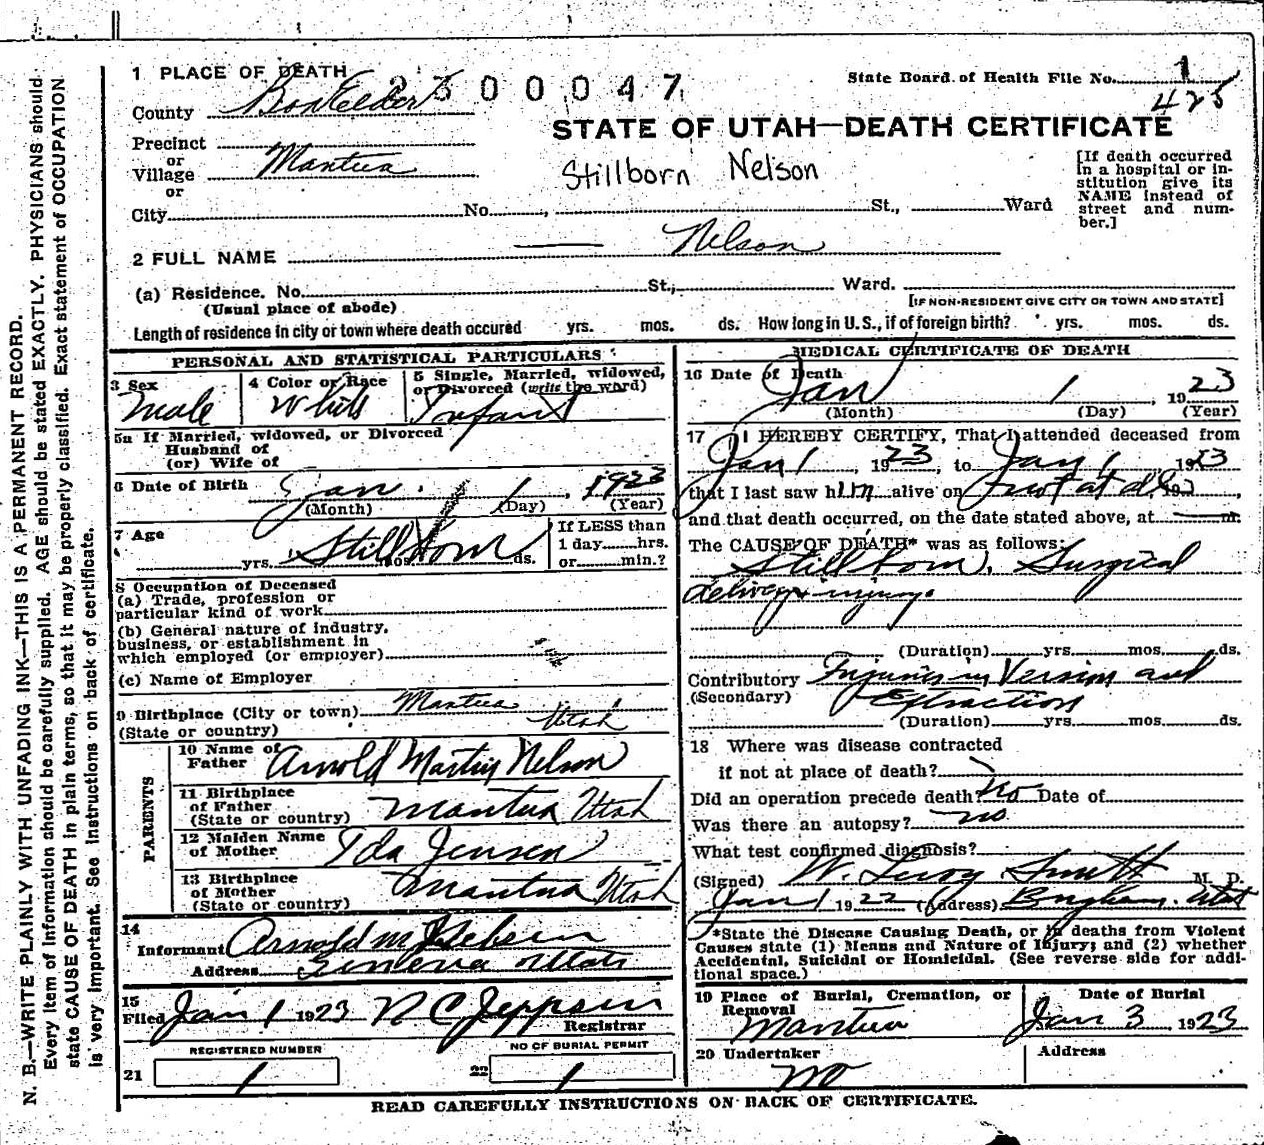 1 PLACE OF DEATH
2300047
State Board of Health File No. 1
425
County Box Elder
STATE OF UTAH—DEATH CERTIFICATE
Precinct
or
Village Mantua
or
Stillborn Nelson
[If death occurred
in a hospital or in-
stitution give its
NAME instead of
street and num-
ber.]
City No. , St., Ward
2 FULL NAME — Nelson
(a) Residence. No. St., Ward.
(Usual place of abode) [IF NON-RESIDENT GIVE CITY OR TOWN AND STATE]
Length of residence in city or town where death occured yrs. mos. ds. How long in U. S., if of foreign birth? yrs. mos. ds.
PERSONAL AND STATISTICAL PARTICULARS
3 Sex
male
4 Color or Race
White
5 Single, Married, widowed,
or Divorced (write the word)
Infant
5a If Married, widowed, or Divorced
Husband of
(or) Wife of
6 Date of Birth Jan. 1, 1923
(Month) (Day) (Year)
7 Age
Stillborn
yrs. mos. ds.
If LESS than
1 day hrs.
or min.?
8 Occupation of Deceased
(a) Trade, profession or
particular kind of work
(b) General nature of industry,
business, or establishment in
which employed (or employer)
(c) Name of Employer
9 Birthplace (City or town) Mantua
(State or country) Utah
PARENTS
10 Name of
Father Arnold Martin Nelson
11 Birthplace
of Father
(State or country) Mantua Utah
12 Maiden Name
of Mother Ida Jensen
13 Birthplace
of Mother
(State or country) Mantua Utah
14
Informant Arnold M
Address
15
Filed Jan 1 1923 N C Jeppsen
Registrar
REGISTERED NUMBER
21 1
NO OF BURIAL PERMIT
22 1
MEDICAL CERTIFICATE OF DEATH
16 Date of Death
Jan 1, 1923
(Month) (Day) (Year)
17 I HEREBY CERTIFY, That I attended deceased from
Jan 1, 1923, to Jan 1, 1923
that I last saw him alive on not at all 19 ,
and that death occurred, on the date stated above, at — m.
The CAUSE OF DEATH* was as follows:
Stillborn. Surgical
delivery injury.
(Duration) yrs. mos. ds.
Contributory Injuries in Version and
(Secondary) Extraction
(Duration) yrs. mos. ds.
18 Where was disease contracted
if not at place of death?
Did an operation precede death? no Date of
Was there an autopsy? no
What test confirmed diagnosis?
(Signed) W. Leroy Smith M. D.
Jan 1 1922 (Address) Brigham. Utah
*State the Disease Causing Death, or in deaths from Violent
Causes state (1) Means and Nature of Injury; and (2) whether
Accidental, Suicidal or Homicidal. (See reverse side for addi-
tional space.)
19 Place of Burial, Cremation, or
Removal
Mantua
Date of Burial
Jan 3, 1923
20 Undertaker
no
Address
READ CAREFULLY INSTRUCTIONS ON BACK OF CERTIFICATE.
N. B.—WRITE PLAINLY WITH UNFADING INK—THIS IS A PERMANENT RECORD.
Every item of information should be carefully supplied. AGE should be stated EXACTLY. PHYSICIANS should
state CAUSE OF DEATH in plain terms, so that it may be properly classified. Exact statement of OCCUPATION
is very important. See instructions on back of certificate.